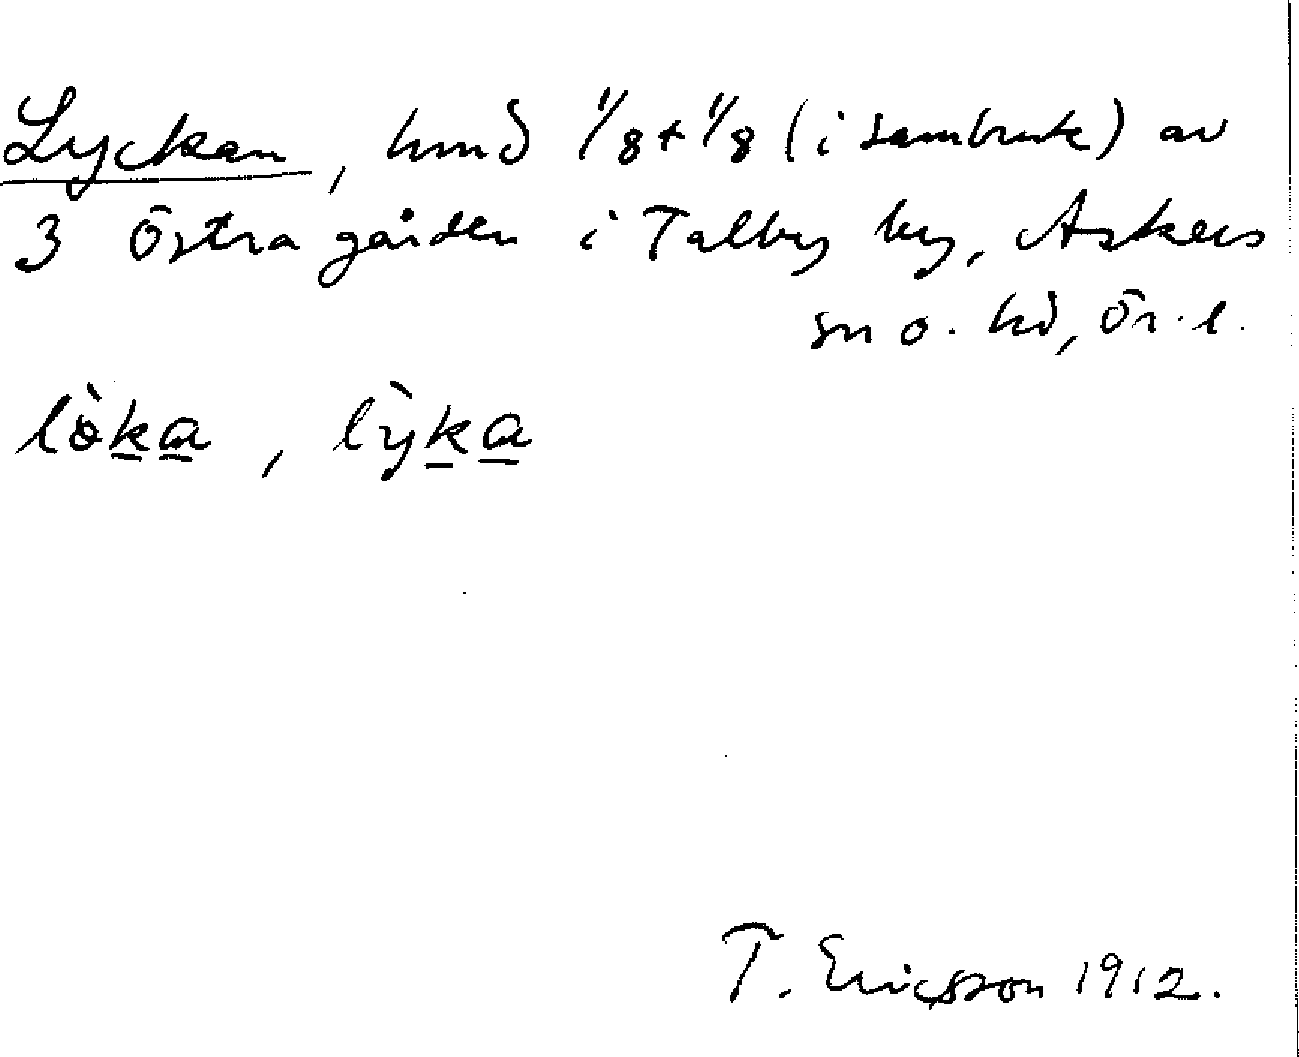 Lyckan, hmd 1/8 + 1/8 (i sambruk) av
3 Östra gården i Talby by, Askers
sn o. hd, Ör. l.
lö̀ka, lỳka
T. Ericsson 1912.